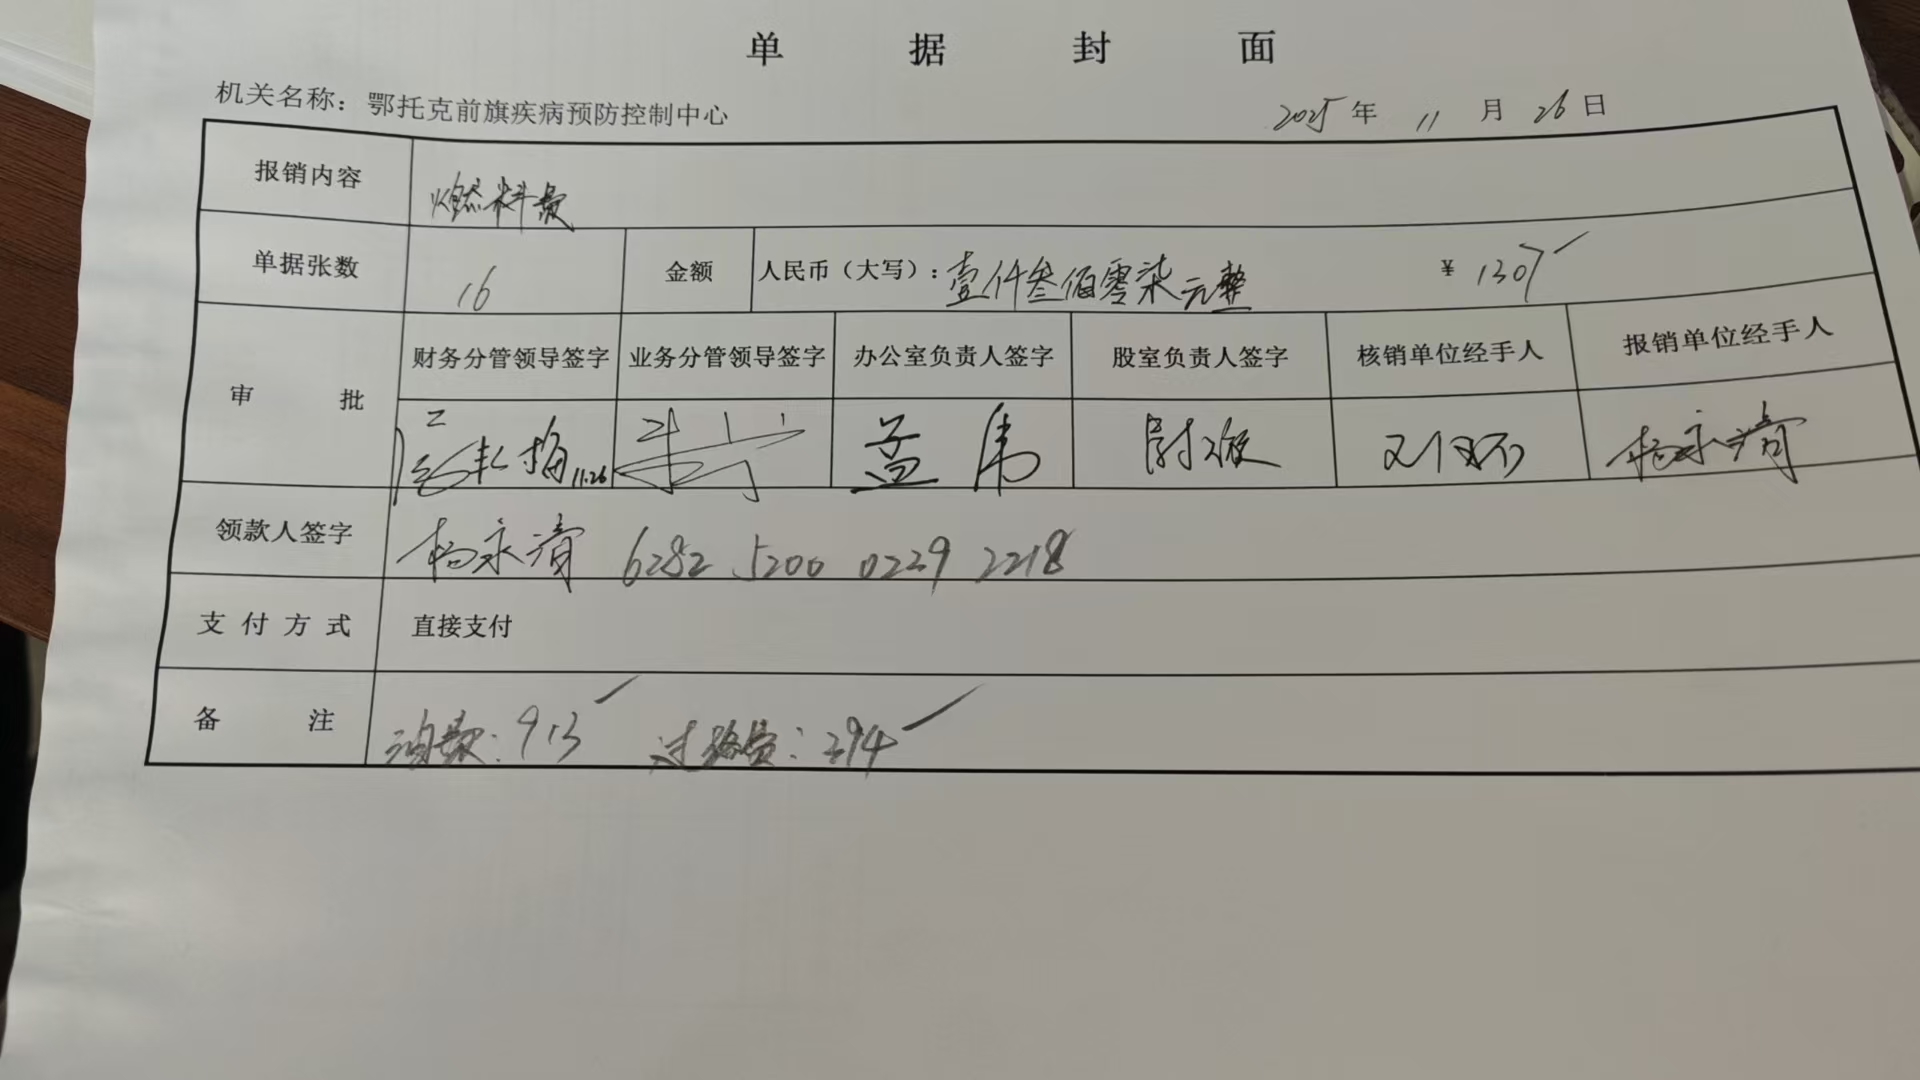 单据封面
机关名称：鄂托克前旗疾病预防控制中心 2025年 11月 26日
报销内容 燃料费
单据张数 16 金额 人民币（大写）：壹仟叁佰零柒元整 ￥1307
审批 财务分管领导签字 业务分管领导签字 办公室负责人签字 股室负责人签字 核销单位经手人 报销单位经手人
11.26 孟 伟 杨永清
领款人签字 杨永清 6282 5200 0229 2218
支付方式 直接支付
备注 油款：913 过路费：394